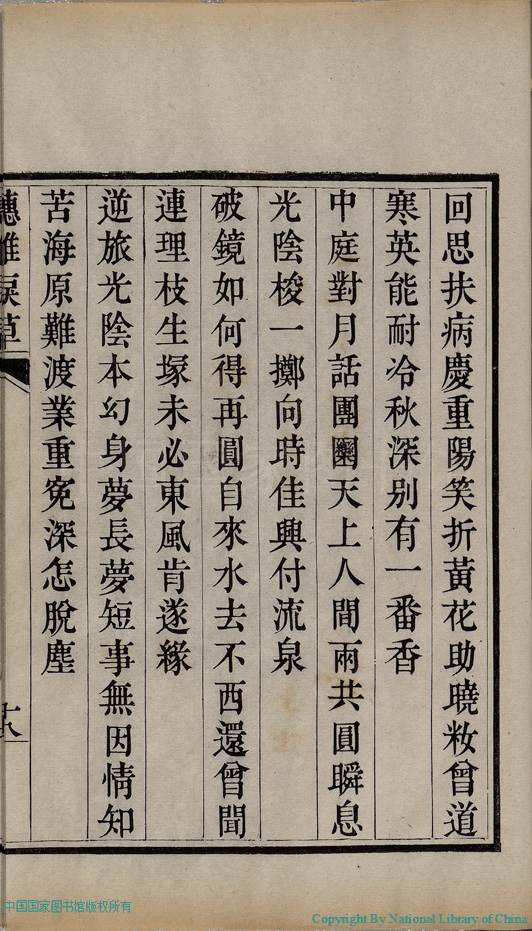 回思扶病慶重陽笑折黃花助曉妝曾道
寒英能耐冷秋深别有一番香
中庭對月話團圞天上人間兩共圓瞬息
光陰梭一擲向時佳興付流泉
破鏡如何得再圓自來水去不西還曾聞
連理枝生塚未必東風肯遂緣
逆旅光陰本幻身夢長夢短事無因情知
苦海原難渡業重寃深怎脫塵
淚草
十八
中国国家图书馆版权所有
Copyright By National Library of China